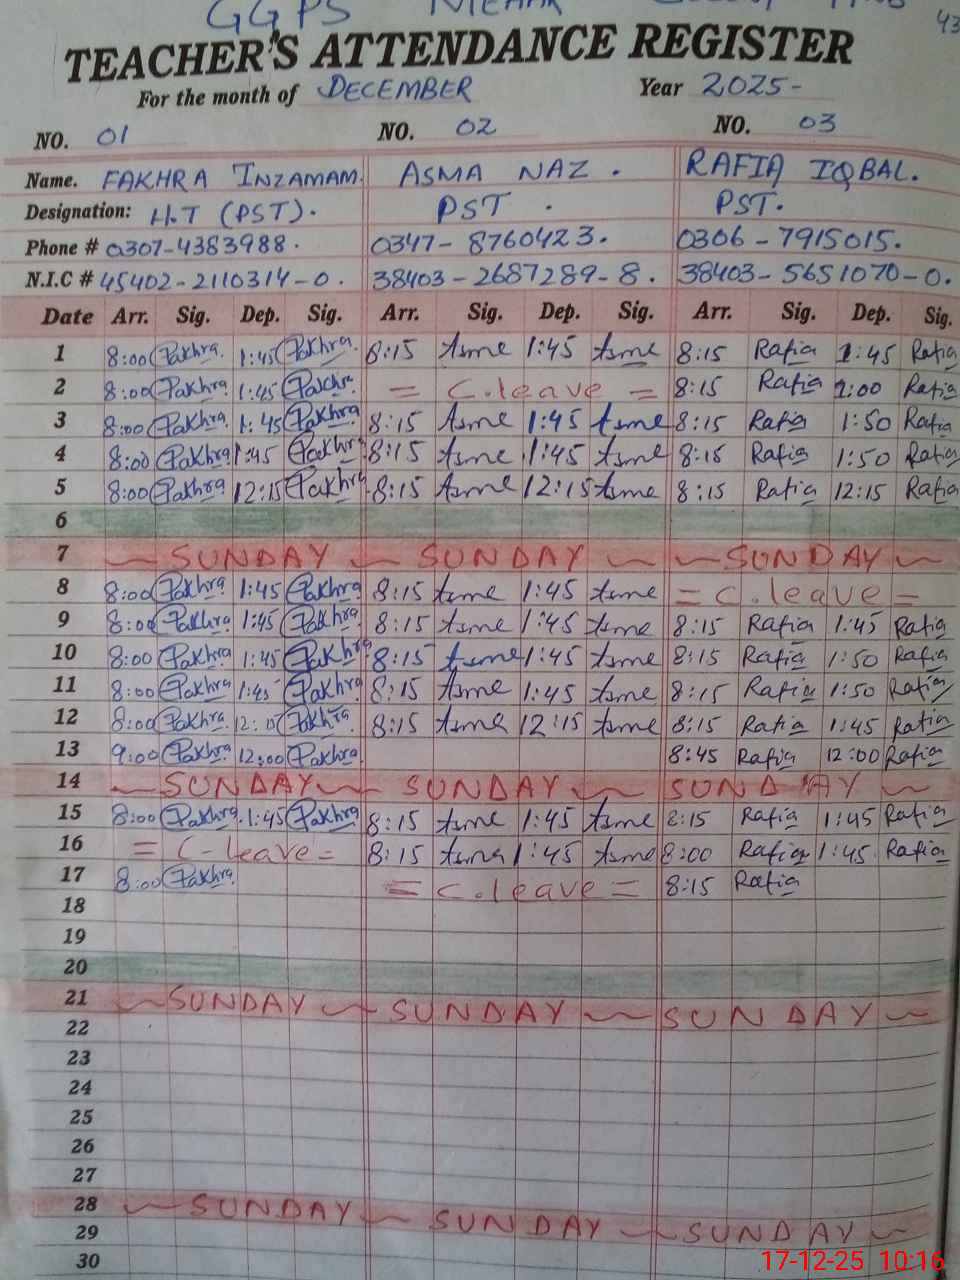 GGPS
TEACHER'S ATTENDANCE REGISTER
For the month of DECEMBER Year 2025-
NO. 01 NO. 02 NO. 03
Name. FAKHRA INZAMAM. ASMA NAZ. RAFIA IQBAL.
Designation: H.T (PST). PST. PST.
Phone # 0307-4383988. 0347-8760423. 0306-7915015.
N.I.C # 45402-2110314-0. 38403-2687289-8. 38403-5651070-0.
Date Arr. Sig. Dep. Sig. Arr. Sig. Dep. Sig. Arr. Sig. Dep. Sig.
1 8:00 Fakhra 1:45 Fakhra 8:15 Asma 1:45 Asma 8:15 Rafia 1:45 Rafia
2 8:00 Fakhra 1:45 Fakhra = C.leave = 8:15 Rafia 1:00 Rafia
3 8:00 Fakhra 1:45 Fakhra 8:15 Asma 1:45 Asma 8:15 Rafia 1:50 Rafia
4 8:00 Fakhra 1:45 Fakhra 8:15 Asma 1:45 Asma 8:15 Rafia 1:50 Rafia
5 8:00 Fakhra 12:15 Fakhra 8:15 Asma 12:15 Asma 8:15 Rafia 12:15 Rafia
6
7 SUNDAY SUNDAY SUNDAY
8 8:00 Fakhra 1:45 Fakhra 8:15 Asma 1:45 Asma = C.leave =
9 8:00 Fakhra 1:45 Fakhra 8:15 Asma 1:45 Asma 8:15 Rafia 1:45 Rafia
10 8:00 Fakhra 1:45 Fakhra 8:15 Asma 1:45 Asma 8:15 Rafia 1:50 Rafia
11 8:00 Fakhra 1:45 Fakhra 8:15 Asma 1:45 Asma 8:15 Rafia 1:50 Rafia
12 8:00 Fakhra Fakhra 8:15 Asma 12:15 Asma 8:15 Rafia 1:45 Rafia
13 9:00 Fakhra 12:00 Fakhra 8:45 Rafia 12:00 Rafia
14 SUNDAY SUNDAY SUNDAY
15 8:00 Fakhra 1:45 Fakhra 8:15 Asma 1:45 Asma 8:15 Rafia 1:45 Rafia
16 = C-leave = 8:15 Asma 1:45 Asma 8:00 Rafia 1:45 Rafia
17 8:00 Fakhra = C.leave = 8:15 Rafia
18
19
20
21 SUNDAY SUNDAY SUNDAY
22
23
24
25
26
27
28 SUNDAY SUNDAY SUNDAY
29
30
17-12-25 10:16